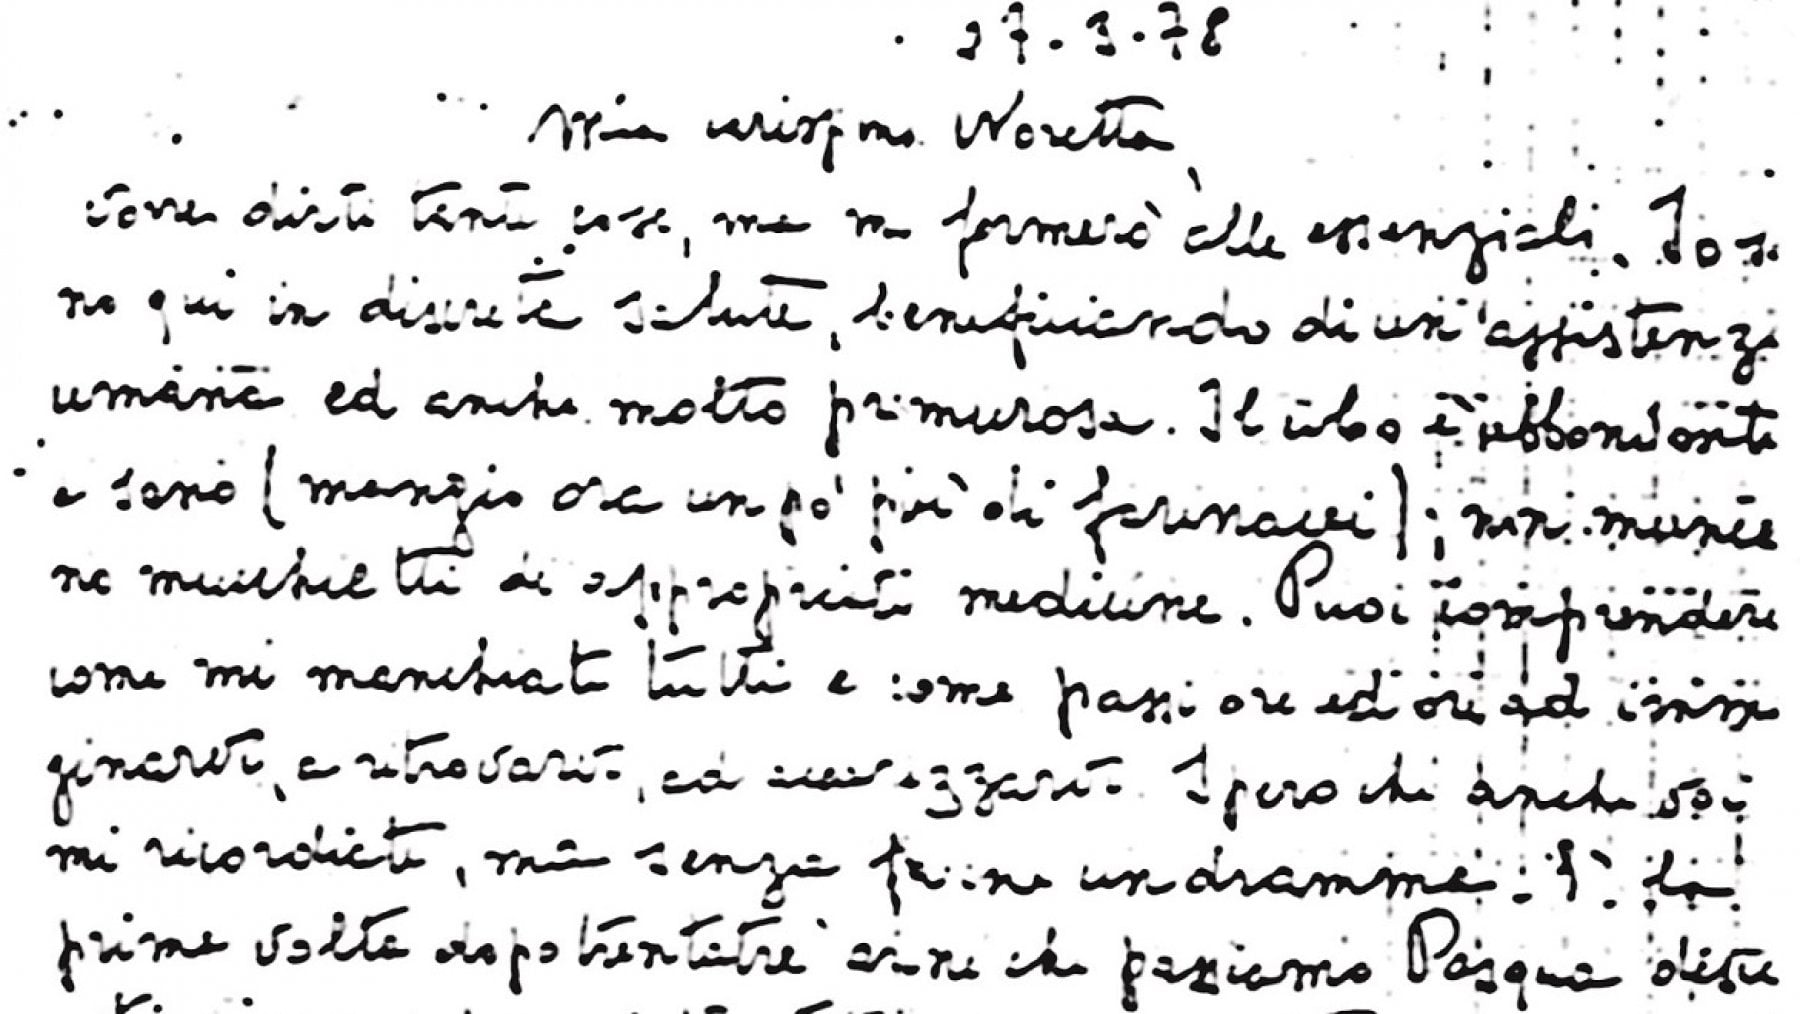 27.3.78
Mia carissima Noretta,
vorrei dirti tante cose, ma mi fermerò alle essenziali. Io so
no qui in discreta salute, beneficiando di un'assistenza
umana ed anche molto premurosa. Il cibo è abbondante
e sano (mangio ora un pò più di farinacei); non manca
no mucchietti di appropriate medicine. Puoi comprendere
come mi manchiate tutti e come passi ore ed ore ad imma
ginarvi, a ritrovarvi, ad accarezzarvi. Spero che anche voi
mi ricordiate, ma senza farne un dramma. È la
prima volta dopo trentatre anni che passiamo Pasqua